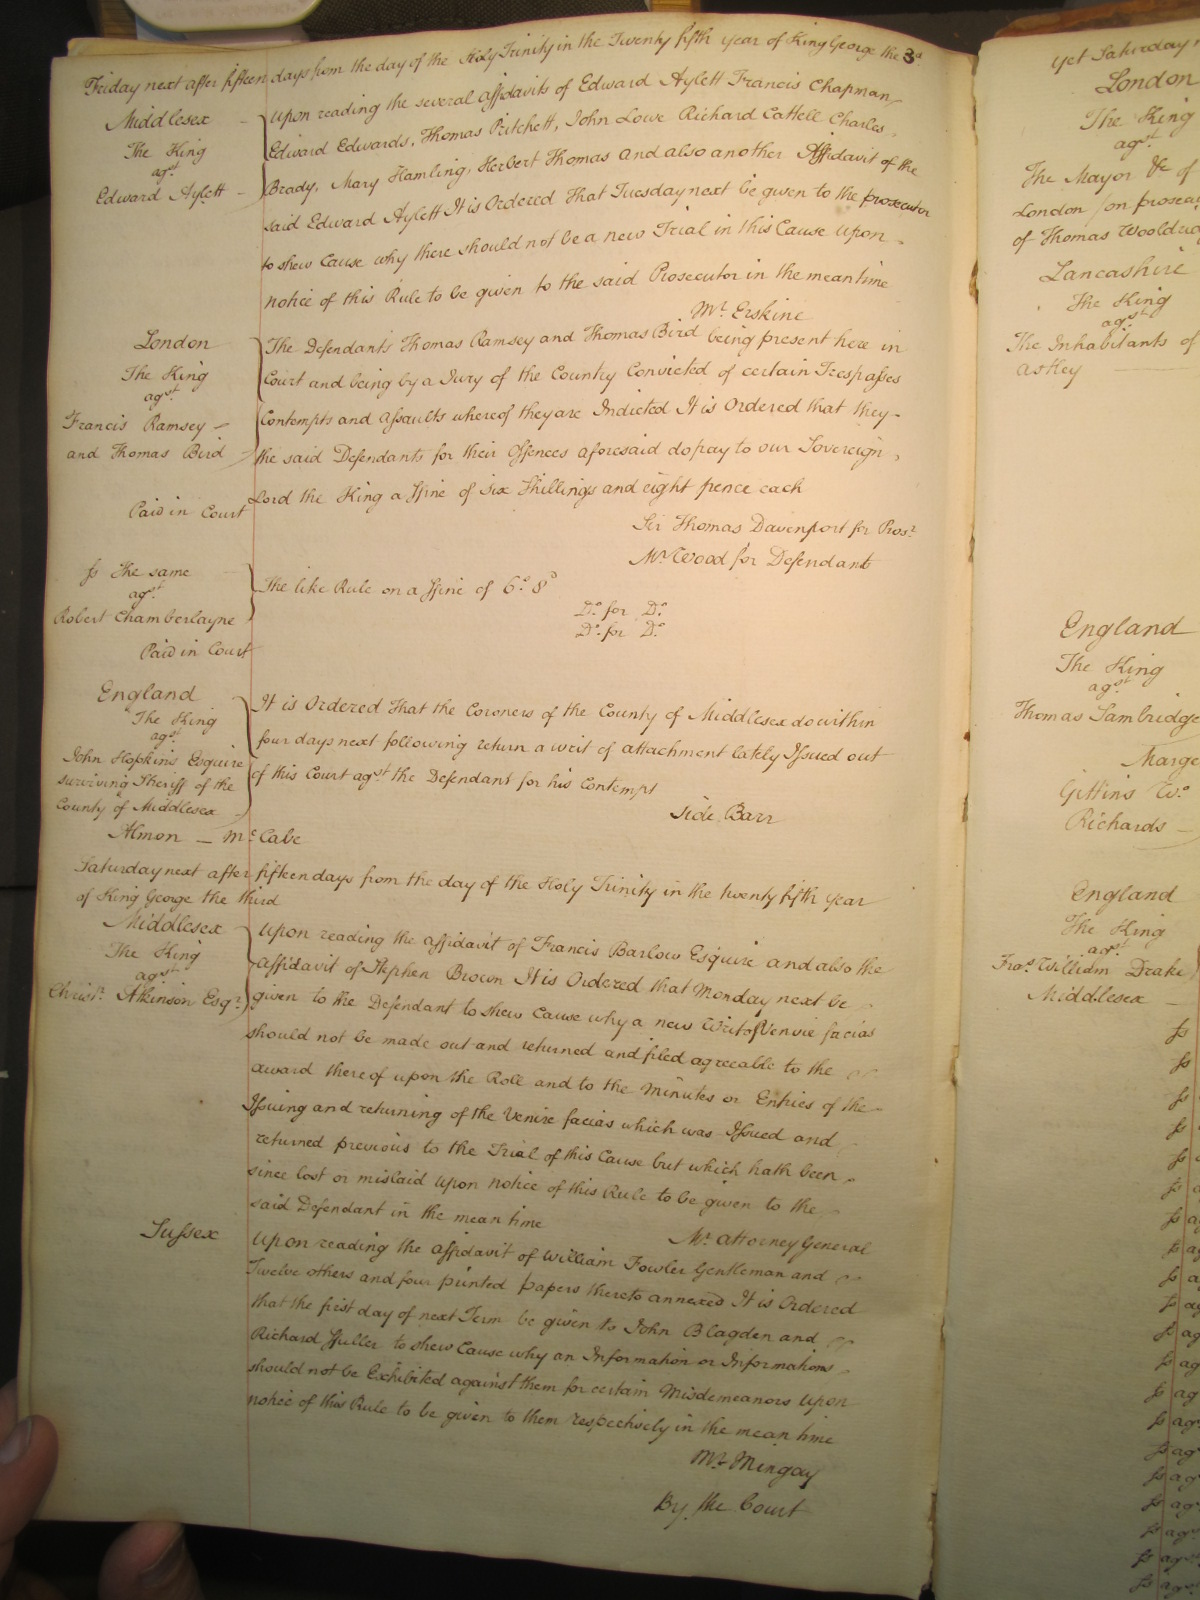 Friday next after fifteen days from the day of the Holy Trinity in the Twenty fifth year of King George the 3d
Middlesex
The King
agst
Edward Aylett
Upon reading the several affidavits of Edward Aylett Francis Chapman
Edward Edwards, Thomas Pritchett, John Lowe Richard Cattell Charles
Brady, Mary Hamling, Herbert Thomas and also another Affidavit of the
said Edward Aylett It is Ordered That Tuesday next be given to the prosecutor
to shew Cause why there should not be a new Trial in this Cause Upon
notice of this Rule to be given to the said Prosecutor in the meantime
Mr. Erskine
London
The King
agst
Francis Ramsey
and Thomas Bird
Paid in Court
The Defendants Thomas Ramsey and Thomas Bird being present here in
Court and being by a Jury of the Country Convicted of certain Trespasses
Contempts and assaults whereof they are Indicted It is Ordered that they
the said Defendants for their Offences aforesaid do pay to our Sovereign
Lord the King a ffine of six Shillings and eight pence each
Sir Thomas Davenport for Prosr
Mr Wood for Defendant
fs The same
agst
Robert Chamberlayne
Paid in Court
The like Rule on a ffine of 6s. 8d
Do. for Do.
Do. for Do.
England
The King
agst
John Hopkins Esquire
surviving Sheriff of the
County of Middlesex
It is Ordered That the Coroners of the County of Middlesex do within
four days next following return a writ of attachment lately Issued out
of this Court agst the Defendant for his Contempt
Side Barr
Almon _ McCabe
Saturday next after fifteen days from the day of the Holy Trinity in the twenty fifth year
of King George the third
Middlesex
The King
agst
Christr. Atkinson Esqr.
Upon reading the affidavit of Francis Barlow Esquire and also the
affidavit of Stephen Brown It is Ordered that Monday next be
given to the Defendant to shew Cause why a new Writ of Venire facias
should not be made out and returned and filed agreeable to the
award thereof upon the Roll and to the Minutes or Entries of the
Issuing and returning of the Venire facias which was Issued and
returned previous to the Trial of this Cause but which hath been
since lost or mislaid upon notice of this Rule to be given to the
said Defendant in the mean time
Mr. Attorney General
Sussex
Upon reading the affidavit of William Fowler Gentleman and
Twelve others and four printed papers thereto annexed It is Ordered
that the first day of next Term be given to John Blagden and
Richard ffuller to shew Cause why an Information or Informations
should not be Exhibited against them for certain Misdemeanors Upon
notice of this Rule to be given to them respectively in the mean time
Mr. Mingay
By the Court
yet Saturday
London
The King
agst
The Mayor &c of
London on prosec
of Thomas Wooldri
Lancashire
The King
agst
The Inhabitants of
Astley
England
The King
agst
Thomas Sambridge
Marge
Gittins
Richards
England
The King
agst
Fras. William Drake
Middlesex
fs
fs
fs ag
fs ag
fs ag
fs a
fs ag
fs ag
fs a
fs ag
fs ag
fs ag
fs ag
fs ag
fs ag
fs ag
fs ag
fs ag
fs ag
fs ags